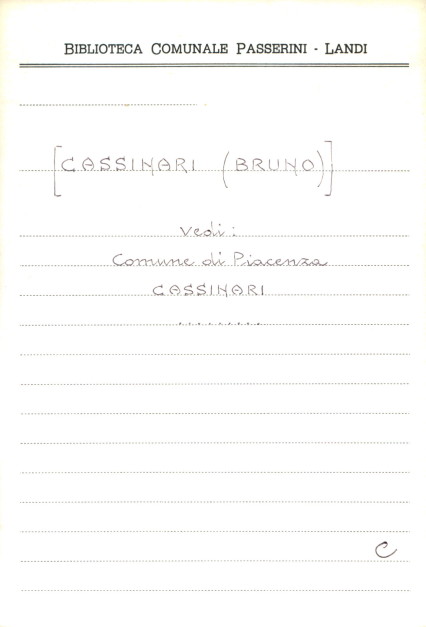 BIBLIOTECA COMUNALE PASSERINI - LANDI
[CASSINARI (BRUNO)]
Vedi:
Comune di Piacenza
CASSINARI
.........
C